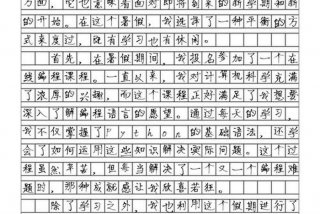 方面，它也意味着面对即将到来的新学期和新
的开始。在这个暑假，我选择了一种平衡的方
式来度过，既有学习也有休闲。
首先，在暑假期间，我报名参加了一个在
线编程课程。一直以来，我对计算机科学充满
了浓厚的兴趣，而这个课程正好满足了我想要
深入了解编程语言的愿望。通过每天的学习，
我不仅掌握了Python的基础语法，还学
会了如何运用这些知识解决实际问题。这个过
程虽然辛苦，但每当我解决了一个又一个编程难
题时，那种成就感让我欣喜若狂。
除了学习之外，我也利用这个假期进行了